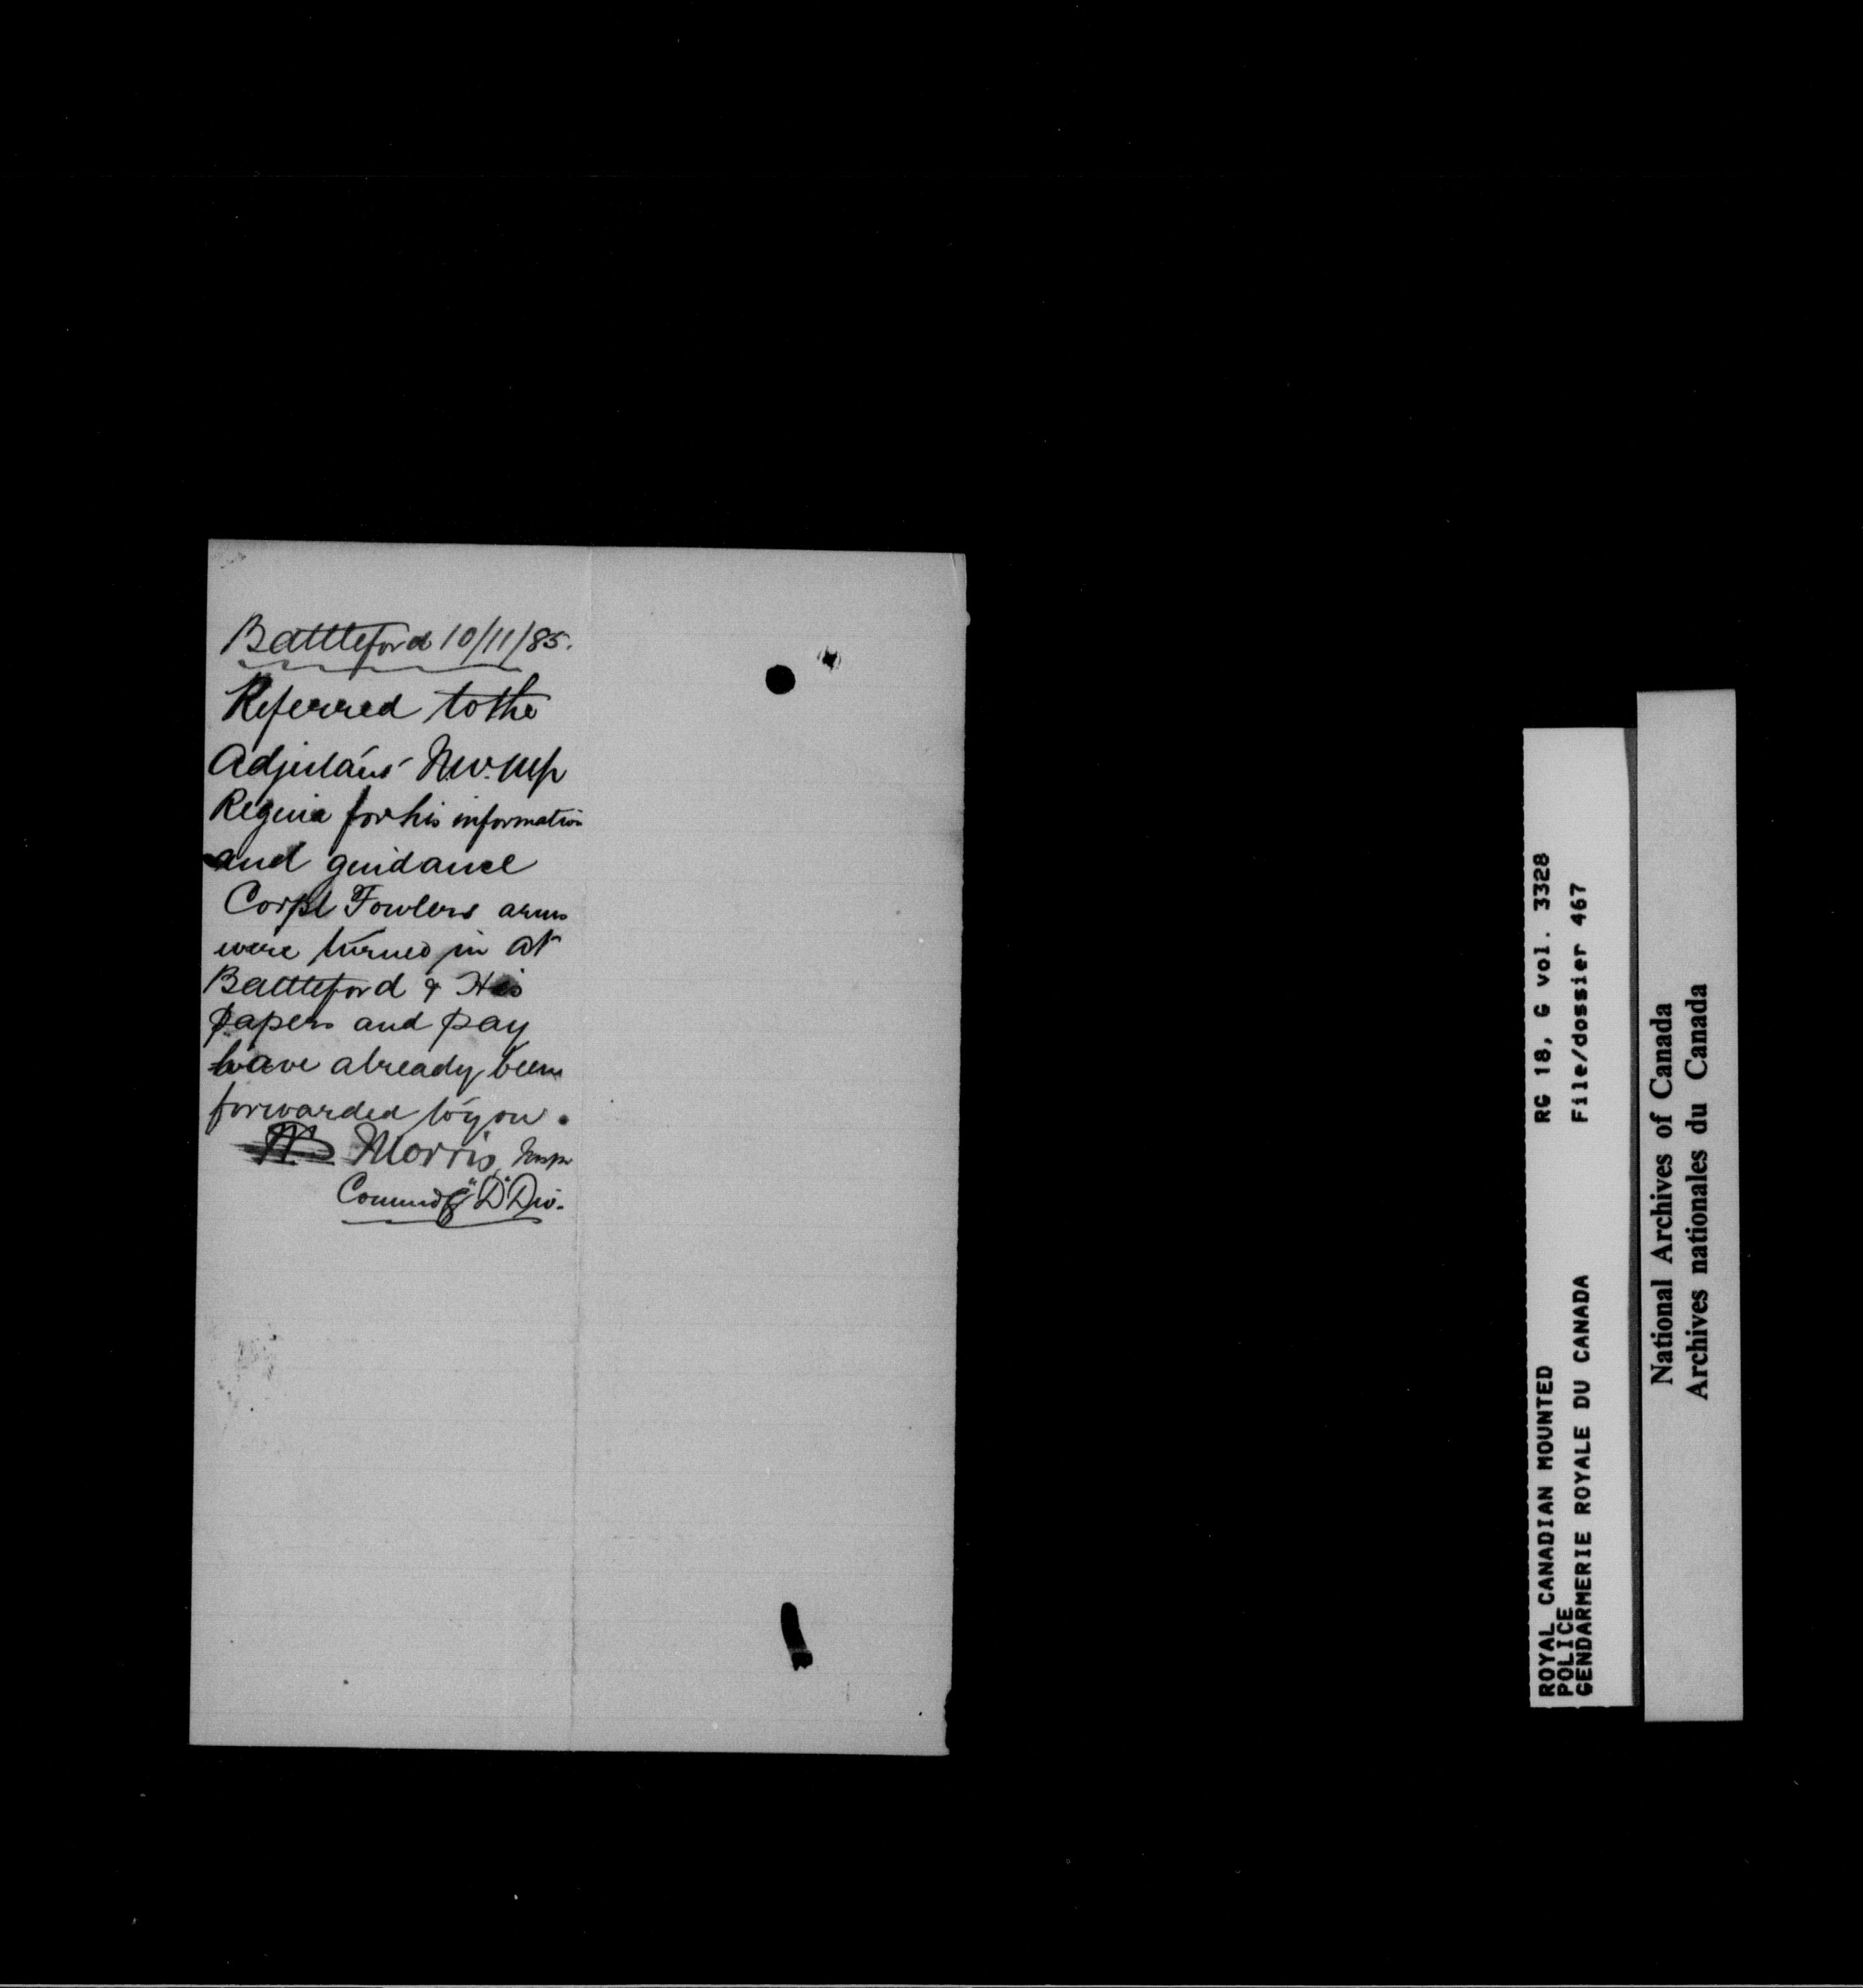 Battleford 10/11/85.
Referred to the
Adjutant N.W.M.P
Regina for his information
and guidance
Corpl Fowlers arms
were turned in at
Battleford & His
papers and pay
have already been
forwarded to you.
Morris, Insp
Commdg "D" Div.
RG 18, G vol. 3328
File/dossier 467
ROYAL CANADIAN MOUNTED
POLICE
GENDARMERIE ROYALE DU CANADA
National Archives of Canada
Archives nationales du Canada